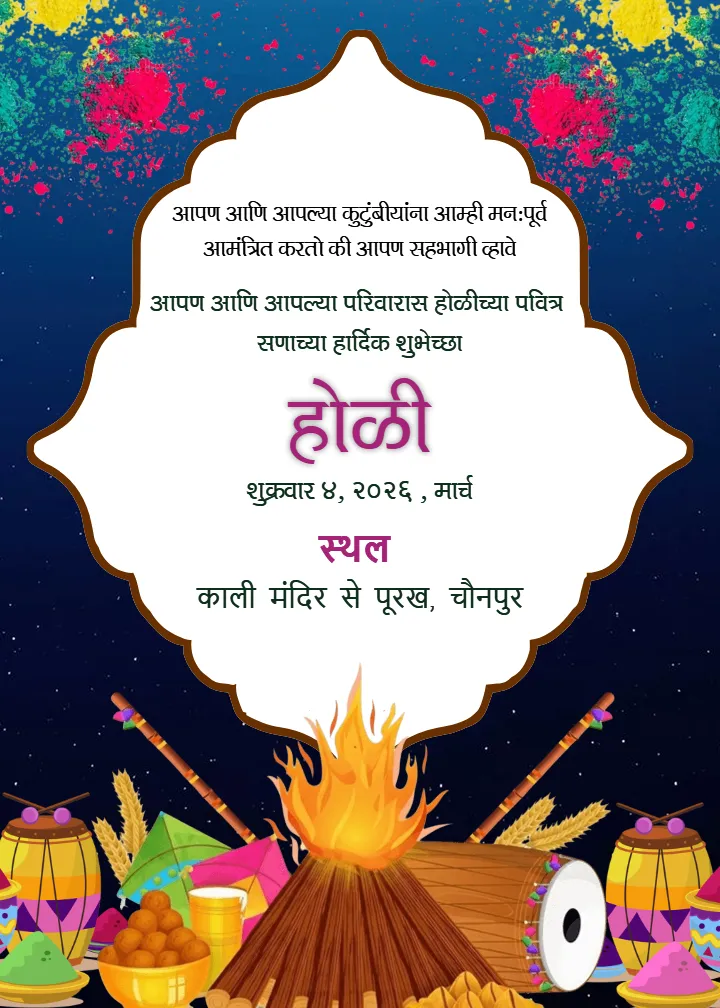 आपण आणि आपल्या कुटुंबीयांना आम्ही मन:पूर्व
आमंत्रित करतो की आपण सहभागी व्हावे
आपण आणि आपल्या परिवारास होळीच्या पवित्र
सणाच्या हार्दिक शुभेच्छा
होळी
शुक्रवार ४, २०२६ , मार्च
स्थल
काली मंदिर से पूरख, चौनपुर